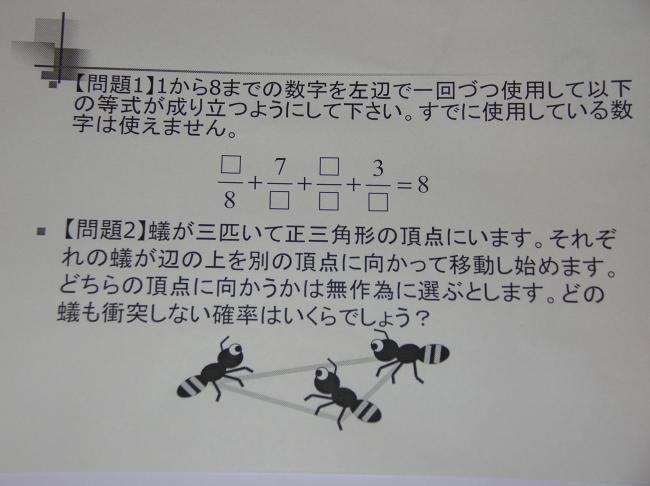 【問題1】1から8までの数字を左辺で一回づつ使用して以下
の等式が成り立つようにして下さい。すでに使用している数
字は使えません。
□/8 + 7/□ + □/□ + 3/□ = 8
【問題2】蟻が三匹いて正三角形の頂点にいます。それぞ
れの蟻が辺の上を別の頂点に向かって移動し始めます。
どちらの頂点に向かうかは無作為に選ぶとします。どの
蟻も衝突しない確率はいくらでしょう?